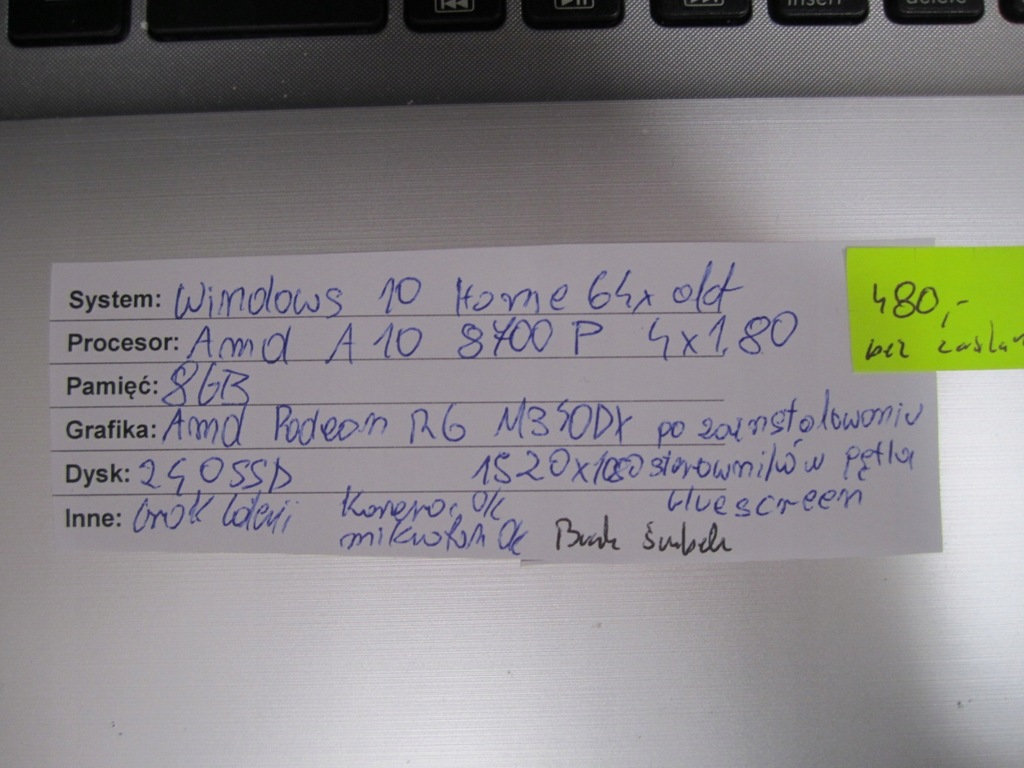 insert
delete
System: Windows 10 Home 64x
Procesor: Amd A10 8700 P 4x1.80
Pamięć: 8GB
Grafika: Amd Radeon R6 M350DX po zainstalowaniu
Dysk: 240SSD 1520x1080 sterowników pętla
bluescreen
Inne: brak Kamera Ok
mikrofon Ok Brak śrubek
480,-
bez